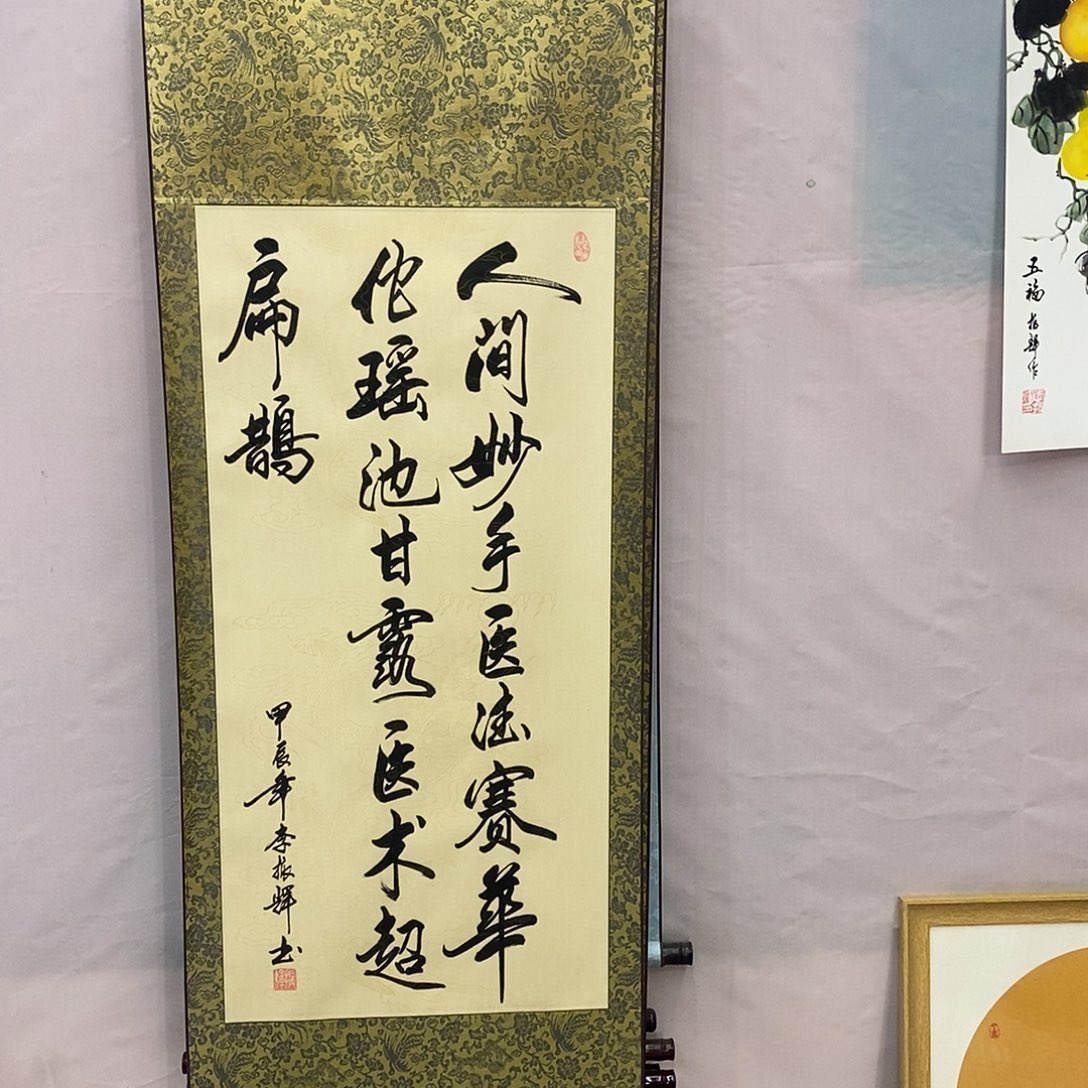 人间妙手医法赛華
佗瑶池甘露医术超
扁鵲
甲辰年李振辉书
五福